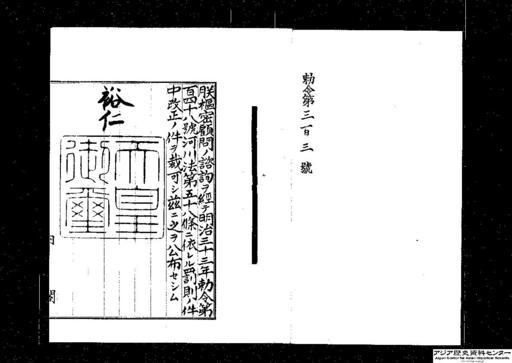 勅令第三百三號
朕樞密顧問ノ諮詢ヲ經テ明治三十三年勅令第
百四十八號河川法第五十八條ニ依レル罰則ノ件
中改正ノ件ヲ裁可シ茲ニ之ヲ公布セシム
裕仁
天皇
御璽
内閣
アジア歴史資料センター
Japan Center for Asian Historical Records